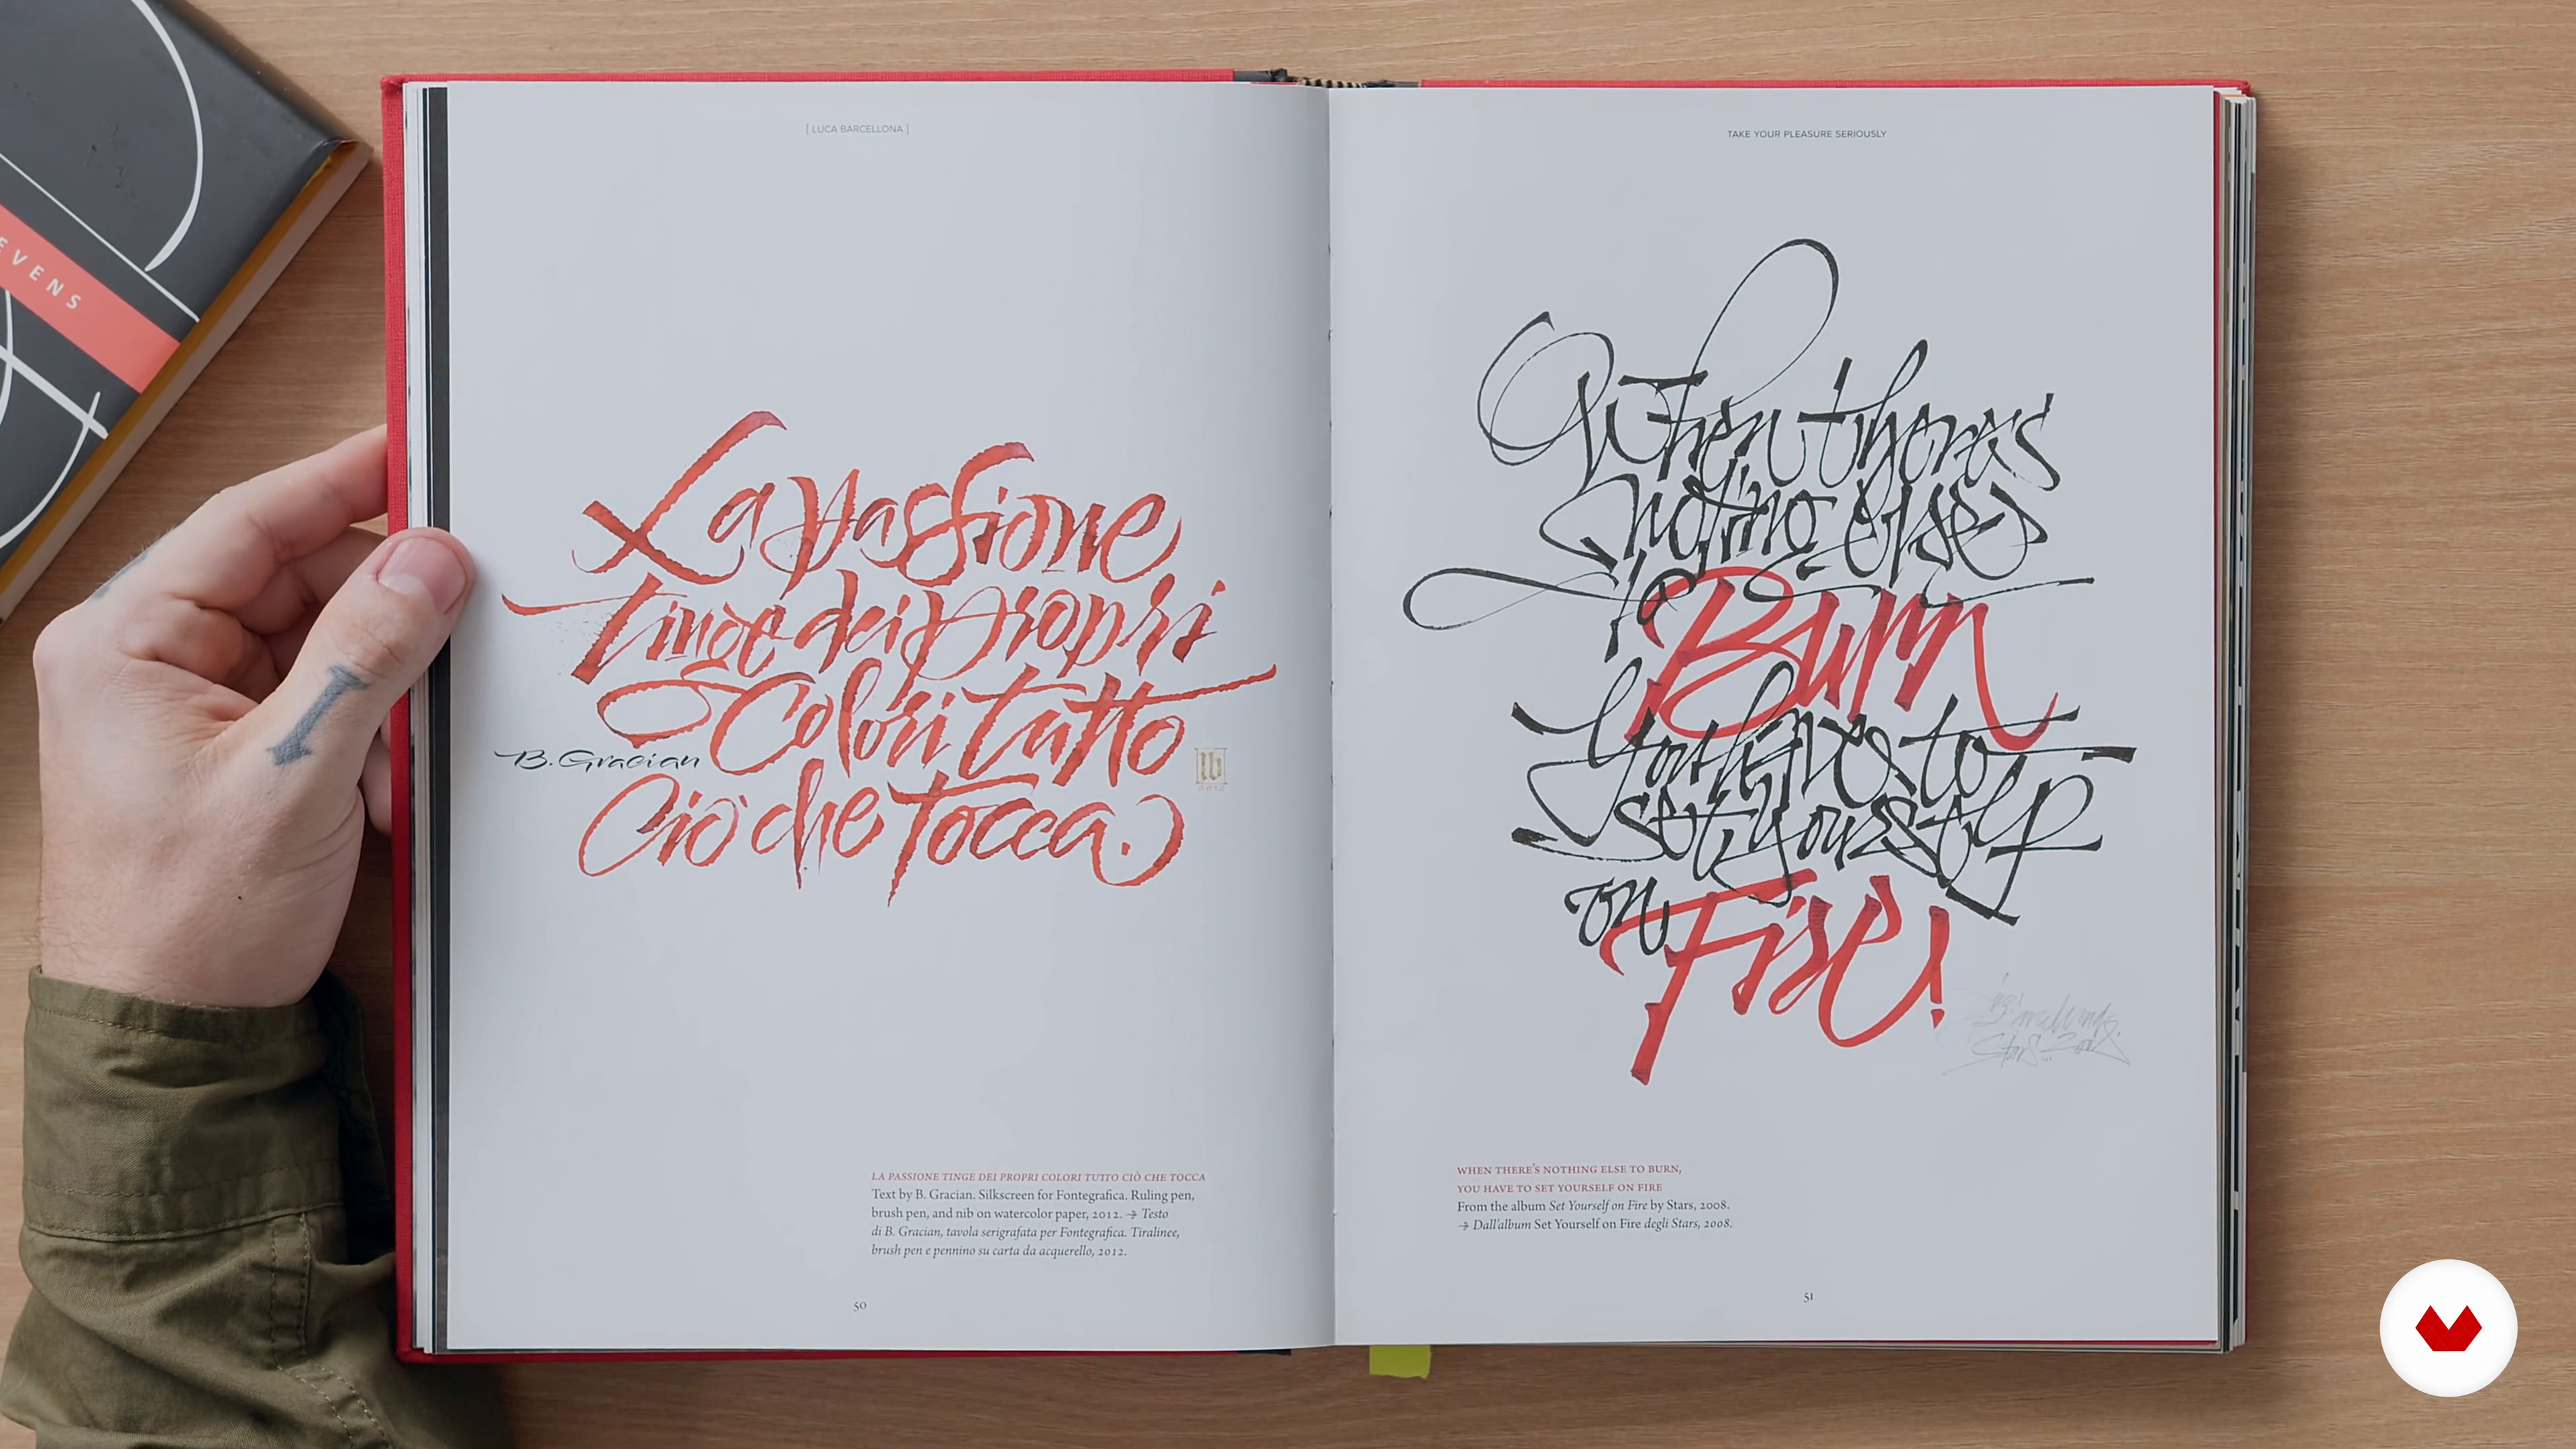 EVENS
[ LUCA BARCELLONA ]
La passione
tinge dei propri
Colori tutto
B. Gracian
Ciò che tocca.
lb
2012
LA PASSIONE TINGE DEI PROPRI COLORI TUTTO CIÒ CHE TOCCA
Text by B. Gracian. Silkscreen for Fontegrafica. Ruling pen,
brush pen, and nib on watercolor paper, 2012. → Testo
di B. Gracian, tavola serigrafata per Fontegrafica. Tiralinee,
brush pen e pennino su carta da acquerello, 2012.
50
TAKE YOUR PLEASURE SERIOUSLY
When there's
nothing else
to Burn
You have to
set yourself
on Fire!
Stars
WHEN THERE'S NOTHING ELSE TO BURN,
YOU HAVE TO SET YOURSELF ON FIRE
From the album Set Yourself on Fire by Stars, 2008.
→ Dall'album Set Yourself on Fire degli Stars, 2008.
51